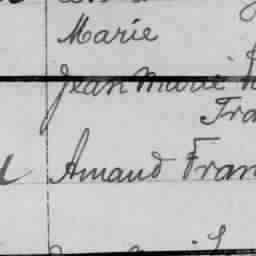 Marie
Jean Marie
Fra
Amand Fran